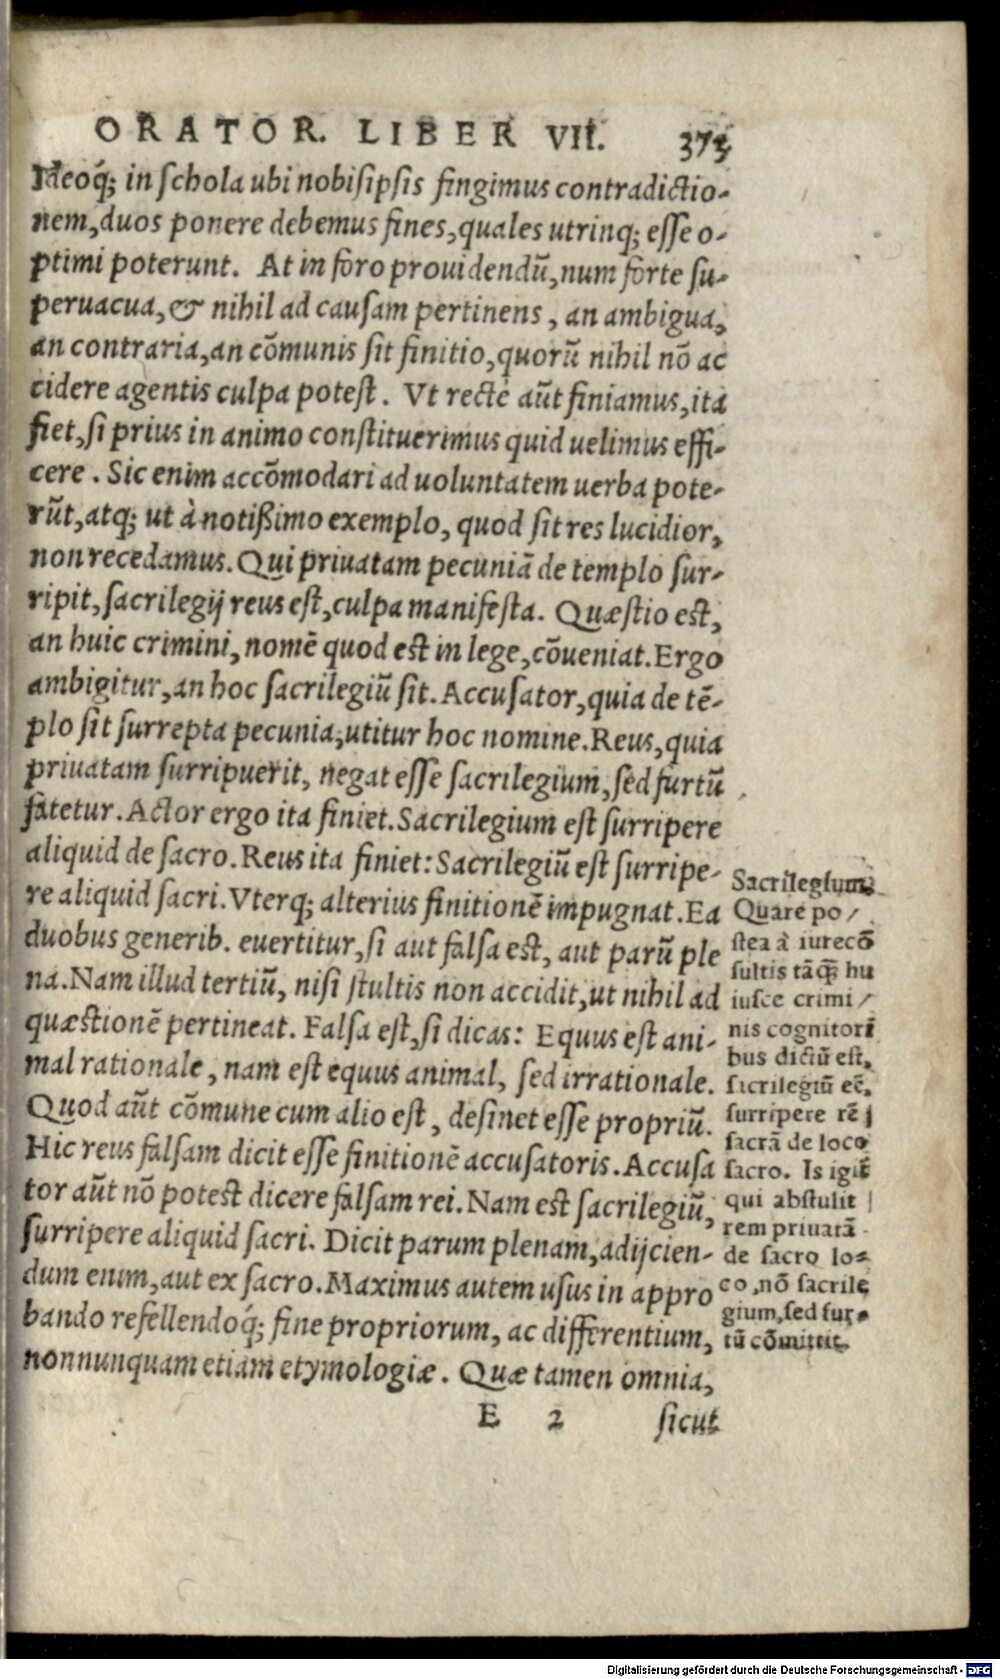 ORATOR. LIBER VII. 373
Ideoq́; in schola ubi nobisipsis fingimus contradictio-
nem, duos ponere debemus fines, quales utrinq; esse o-
ptimi poterunt. At in foro prouidendũ, num forte su-
peruacua, & nihil ad causam pertinens, an ambigua,
an contraria, an cõmunis sit finitio, quorũ nihil nõ ac
cidere agentis culpa potest. Vt recte aũt finiamus, ita
fiet, si prius in animo constituerimus quid uelimus effi-
cere. Sic enim accõmodari ad uoluntatem uerba pote-
rũt, atq; ut à notißimo exemplo, quod sit res lucidior,
non recedamus. Qui priuatam pecuniã de templo sur-
ripit, sacrilegij reus est, culpa manifesta. Quæstio est,
an huic crimini, nomẽ quod est in lege, cõueniat. Ergo
ambigitur, an hoc sacrilegiũ sit. Accusator, quia de tẽ-
plo sit surrepta pecunia, utitur hoc nomine. Reus, quia
priuatam surripuerit, negat esse sacrilegium, sed furtũ
fatetur. Actor ergo ita finiet. Sacrilegium est surripere
aliquid de sacro. Reus ita finiet: Sacrilegiũ est surripe-
re aliquid sacri. Vterq; alterius finitionẽ impugnat. Ea
duobus generib. euertitur, si aut falsa est, aut parũ ple
na. Nam illud tertiũ, nisi stultis non accidit, ut nihil ad
quæstionẽ pertineat. Falsa est, si dicas: Equus est ani-
mal rationale, nam est equus animal, sed irrationale.
Quod aũt cõmune cum alio est, desinet esse propriũ.
Hic reus falsam dicit esse finitionẽ accusatoris. Accusa
tor aũt nõ potest dicere falsam rei. Nam est sacrilegiũ,
surripere aliquid sacri. Dicit parum plenam, adijcien-
dum enim, aut ex sacro. Maximus autem usus in appro
bando refellendoq́; fine propriorum, ac differentium,
nonnunquam etiam etymologiæ. Quæ tamen omnia,
E 2 sicut
Sacrilegium
Quare po/
stea à iurecõ
sultis tãq̃ hu
iusce crimi/
nis cognitori
bus dictũ est,
sacrilegiũ eẽ,
surripere rẽ
sacrã de loco
sacro. Is igit
qui abstulit
rem priuatã
de sacro lo=
co, nõ sacrile
gium, sed fur=
tũ cõmittit.
Digitalisierung gefördert durch die Deutsche Forschungsgemeinschaft - DFG